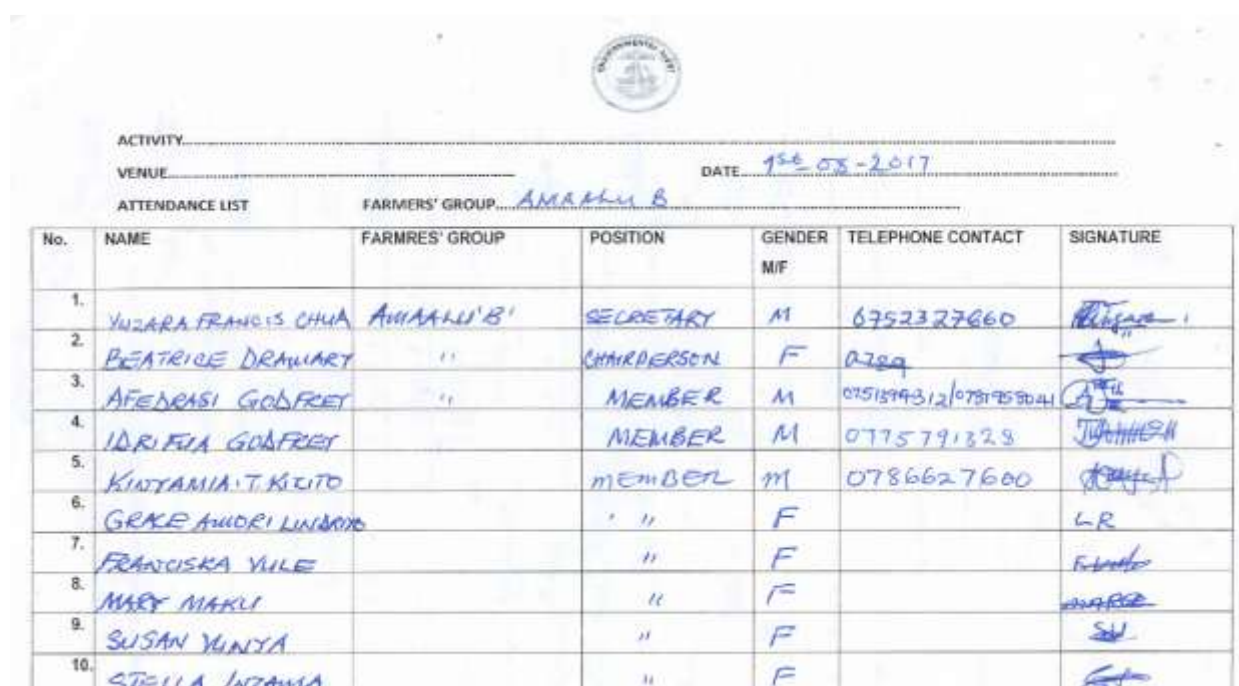 ENVIRONMENTAL ALERT
ACTIVITY
VENUE DATE 1st-08-2017
ATTENDANCE LIST FARMERS' GROUP AMAALU B
No. NAME FARMRES' GROUP POSITION GENDER M/F TELEPHONE CONTACT SIGNATURE
1. YUZARA FRANCIS CHUA AMAALU 'B' SECRETARY M 0752327660
2. BEATRICE DRAWARY " CHAIRPERSON F
3. AFEDRASI GODFREY " MEMBER M
4. IDRIFUA GODFREY MEMBER M 0775791328
5. KINYAMIA.T.KIZITO MEMBER M 0786627600
6. GRACE AMORI " F LR
7. FRANCISKA VULE " F
8. MARY MAKU " F
9. SUSAN " F
10. STELLA " F